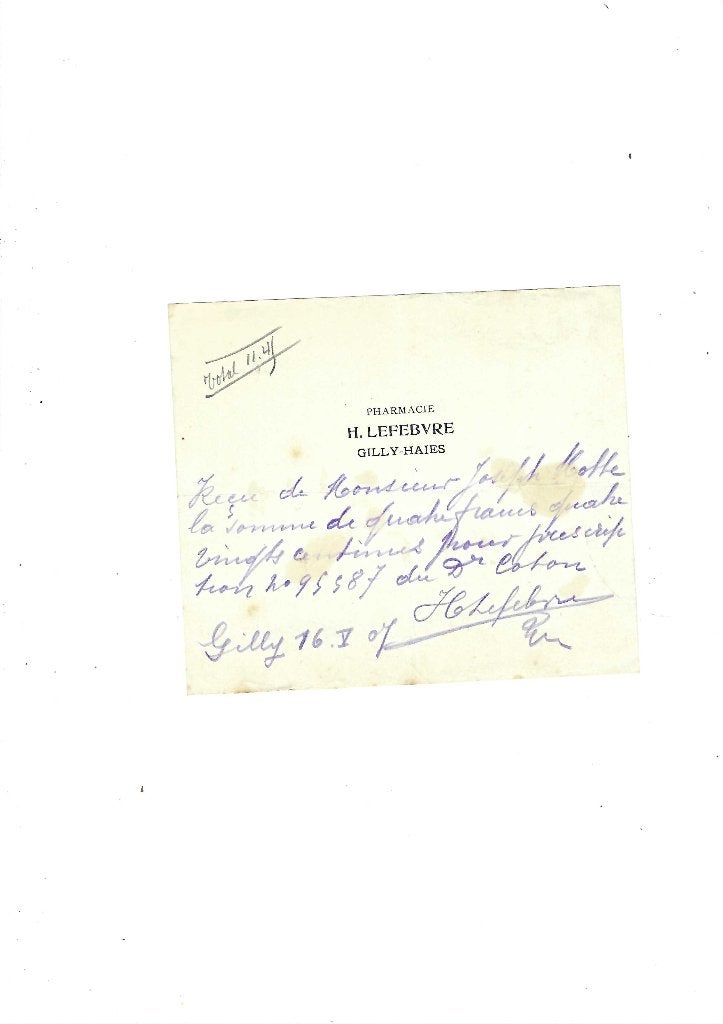 Total 11.45
PHARMACIE
H. LEFEBVRE
GILLY-HAIES
Reçu de Monsieur Joseph Motte
la somme de quatre francs quatre
vingts centimes pour prescrip
tion No 95587 du Dr Coton
HLefebvre
Gilly 16.V 07